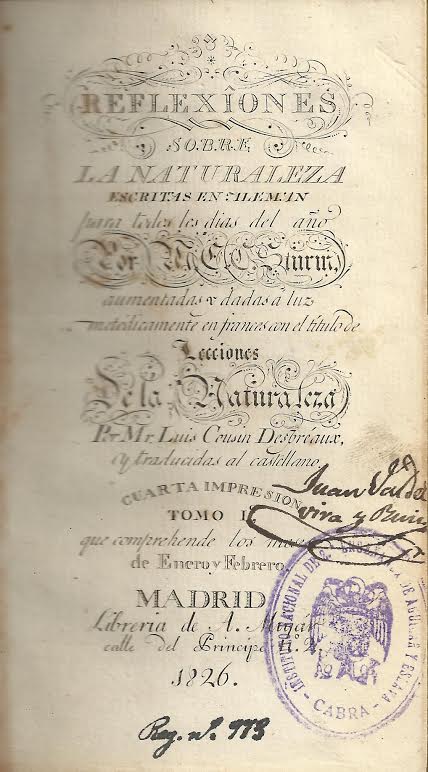 REFLEXÎONES
SOBRE
LA NATURALEZA
ESCRITAS EN ALEMAN
para todos los dias del año
Por M. C. C. Sturm,
aumentadas y dadas á luz
metódicamente en frances con el título de
Lecciones
De la Naturaleza
Por Mr. Luis Cousin Despréaux,
y traducidas al castellano.
CUARTA IMPRESION
TOMO I
que comprehende los meses
de Enero y Febrero.
MADRID
Libreria de A. Miyar
calle del Principe N.º 2.
1826.
Juan Valde
vira y Buiu
INSTITUTO NACIONAL DE ENSEÑANZA
DE AGUILAR Y ESLAVA
- CABRA -
Reg. nº. 773